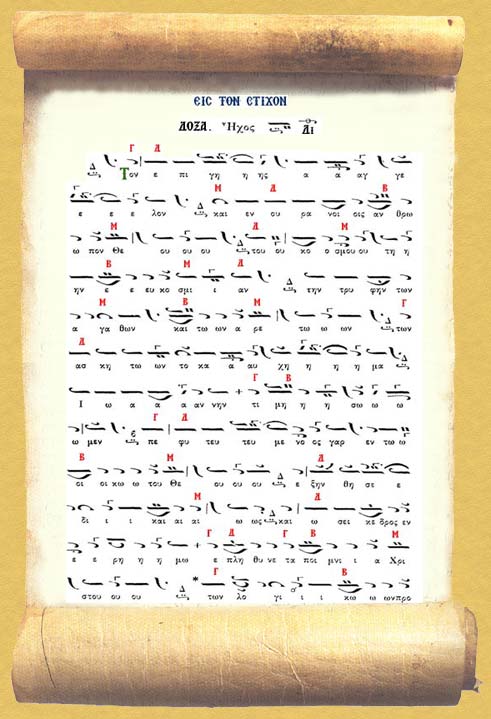 ΕΙΣ ΤΟΝ ΣΤΙΧΟΝ
ΔΟΞΑ. Ἦχος Δι
Τον ε πι γη η ης α α αγ γε
ε ε ε λον και εν ου ρα νοι οις αν θρω
ω πον Θε ου ου ου του ου κο ο σμου ου τη η
ην ε ε ευ κο σμι ι αν την τρυ φην των
α γα θων και τω ων α ρε τω ω ων των
ασ κη τω ων το κα α αυ χη η η η μα
Ι ω α α α αν νην τι μη η η σω ω ω
ω μεν πε φυ τευ τευ με νο ος γαρ εν τω ω
οι οι κω ω του Θε ου ου ου ε ξην θη σε ε
δι ι ι και αι αι ω ως και ω σει κε δρος εν
ε ε ρη η η μω ε πλη θυ νε τα ποι μνι ι α Χρι
στου ου ου * των λο γι ι ι κω ω ων προ